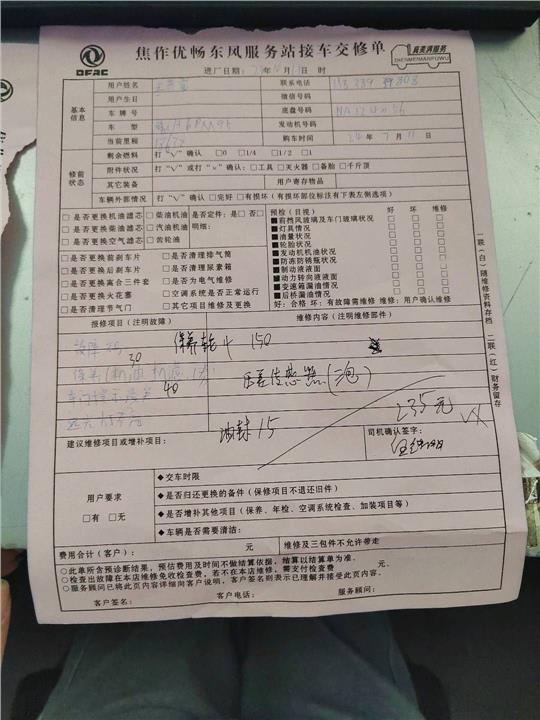 DFAC
焦作优畅东风服务站接车交修单
真美满服务
ZHENMEIMANFUWU
进厂日期: 年 月 日 时
基本信息
用户姓名
联系电话
用户生日
微信号码
车牌号
底盘号码
车型
发动机号码
当前里程
购车时间 24年7月11日
修前状态
剩余燃料 打"√"确认 □0 □1/4 □1/2 □1
附件状况 打"√"或打"×"确认：□工具 □灭火器 □备胎 □千斤顶
其它装备
用户寄存物品
车辆外部情况 打"√"确认 □完好 □有损坏（有损坏部位标注有下表左侧选项）
□是否更换机油滤芯 □柴油机油 是否定件：是□否□
□是否更换柴油滤芯 □汽油机油 明细：
□是否更换空气滤芯 □齿轮油
□是否更换前刹车片 □是否清理排气筒
□是否更换后刹车片 □是否清理尿素箱
□是否更换离合三件套 □是否为电气维修
□是否更换火花塞 □空调系统是否正常运行
□是否清理节气门 □其它项目维修及更换
预检（目视） 好 坏 维修
■前挡风玻璃及车门玻璃状况 □ □ □
■灯具情况 □ □ □
■油量状况 □ □ □
■轮胎状况 □ □ □
■发动机机油状况 □ □ □
■防冻防锈瓶状况 □ □ □
■制动液液面 □ □ □
■动力转向液液面 □ □ □
■变速箱漏油情况 □ □ □
■后桥漏油情况 □ □ □
好：合格 坏：有故障需维修 维修：用户确认维修
一联（白）随维修资料存档 二联（红）财务留存
报修项目（注明故障）
维修内容（注明维修部件）
故障码
30
保养轮斗 150
40
压差传感器(三包)
油封15
235元
建议维修项目或增补项目：
司机确认签字：
用户要求
□有 □无
◆交车时限
◆是否归还更换的备件（保修项目不退还旧件）
◆是否增补其他项目（保养、年检、空调系统检查、加装项目等）
◆车辆是否需要清洁：
费用合计（客户）： 元
维修及三包件不允许带走
○此单所含预诊断结果，预估费用及时间不做结算依据，结算以结算单为准。
○检查出故障在本店维修免收检查费，若不在本店维修，需支付检查费 元。
○服务顾问已将此页内容详细向客户说明，客户签名则表示已理解并接受此页内容。
客户签名： 客户电话： 服务顾问：